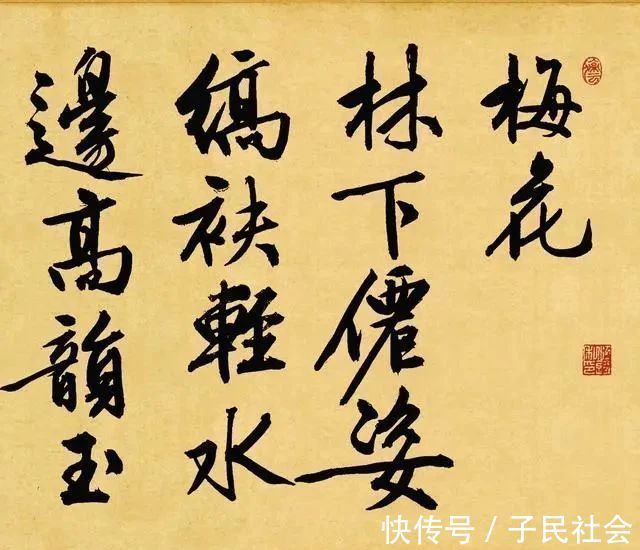 梅花
林下僊姿
縞袂輕水
邊高韻玉
快传号 / 子民社会